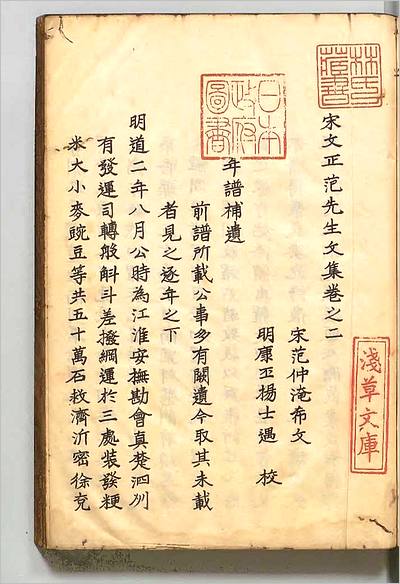 林氏藏書
日本政府圖書
淺草文庫
宋文正范先生文集卷之二
宋范仲淹希文
明康丕揚士遇 校
年譜補遺
前譜所載公事多有闕遺今取其未載
者見之逐年之下
明道二年八月公時為江淮安撫勘會真楚泗州
有發運司轉般斛斗差撥綱運於三處装發粳
米大小麥豌豆等共五十萬石救濟沂密徐兖